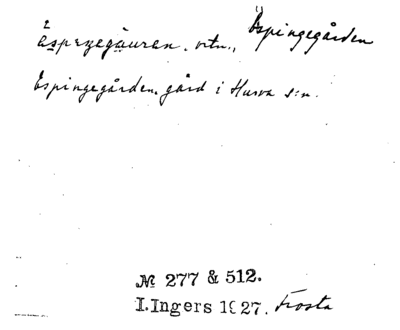 äspeŋegåuran. ortn., Äspingegården
Espingegården. gård i Hurva s:n.
№ 277 & 512.
I.Ingers 1927. Frosta